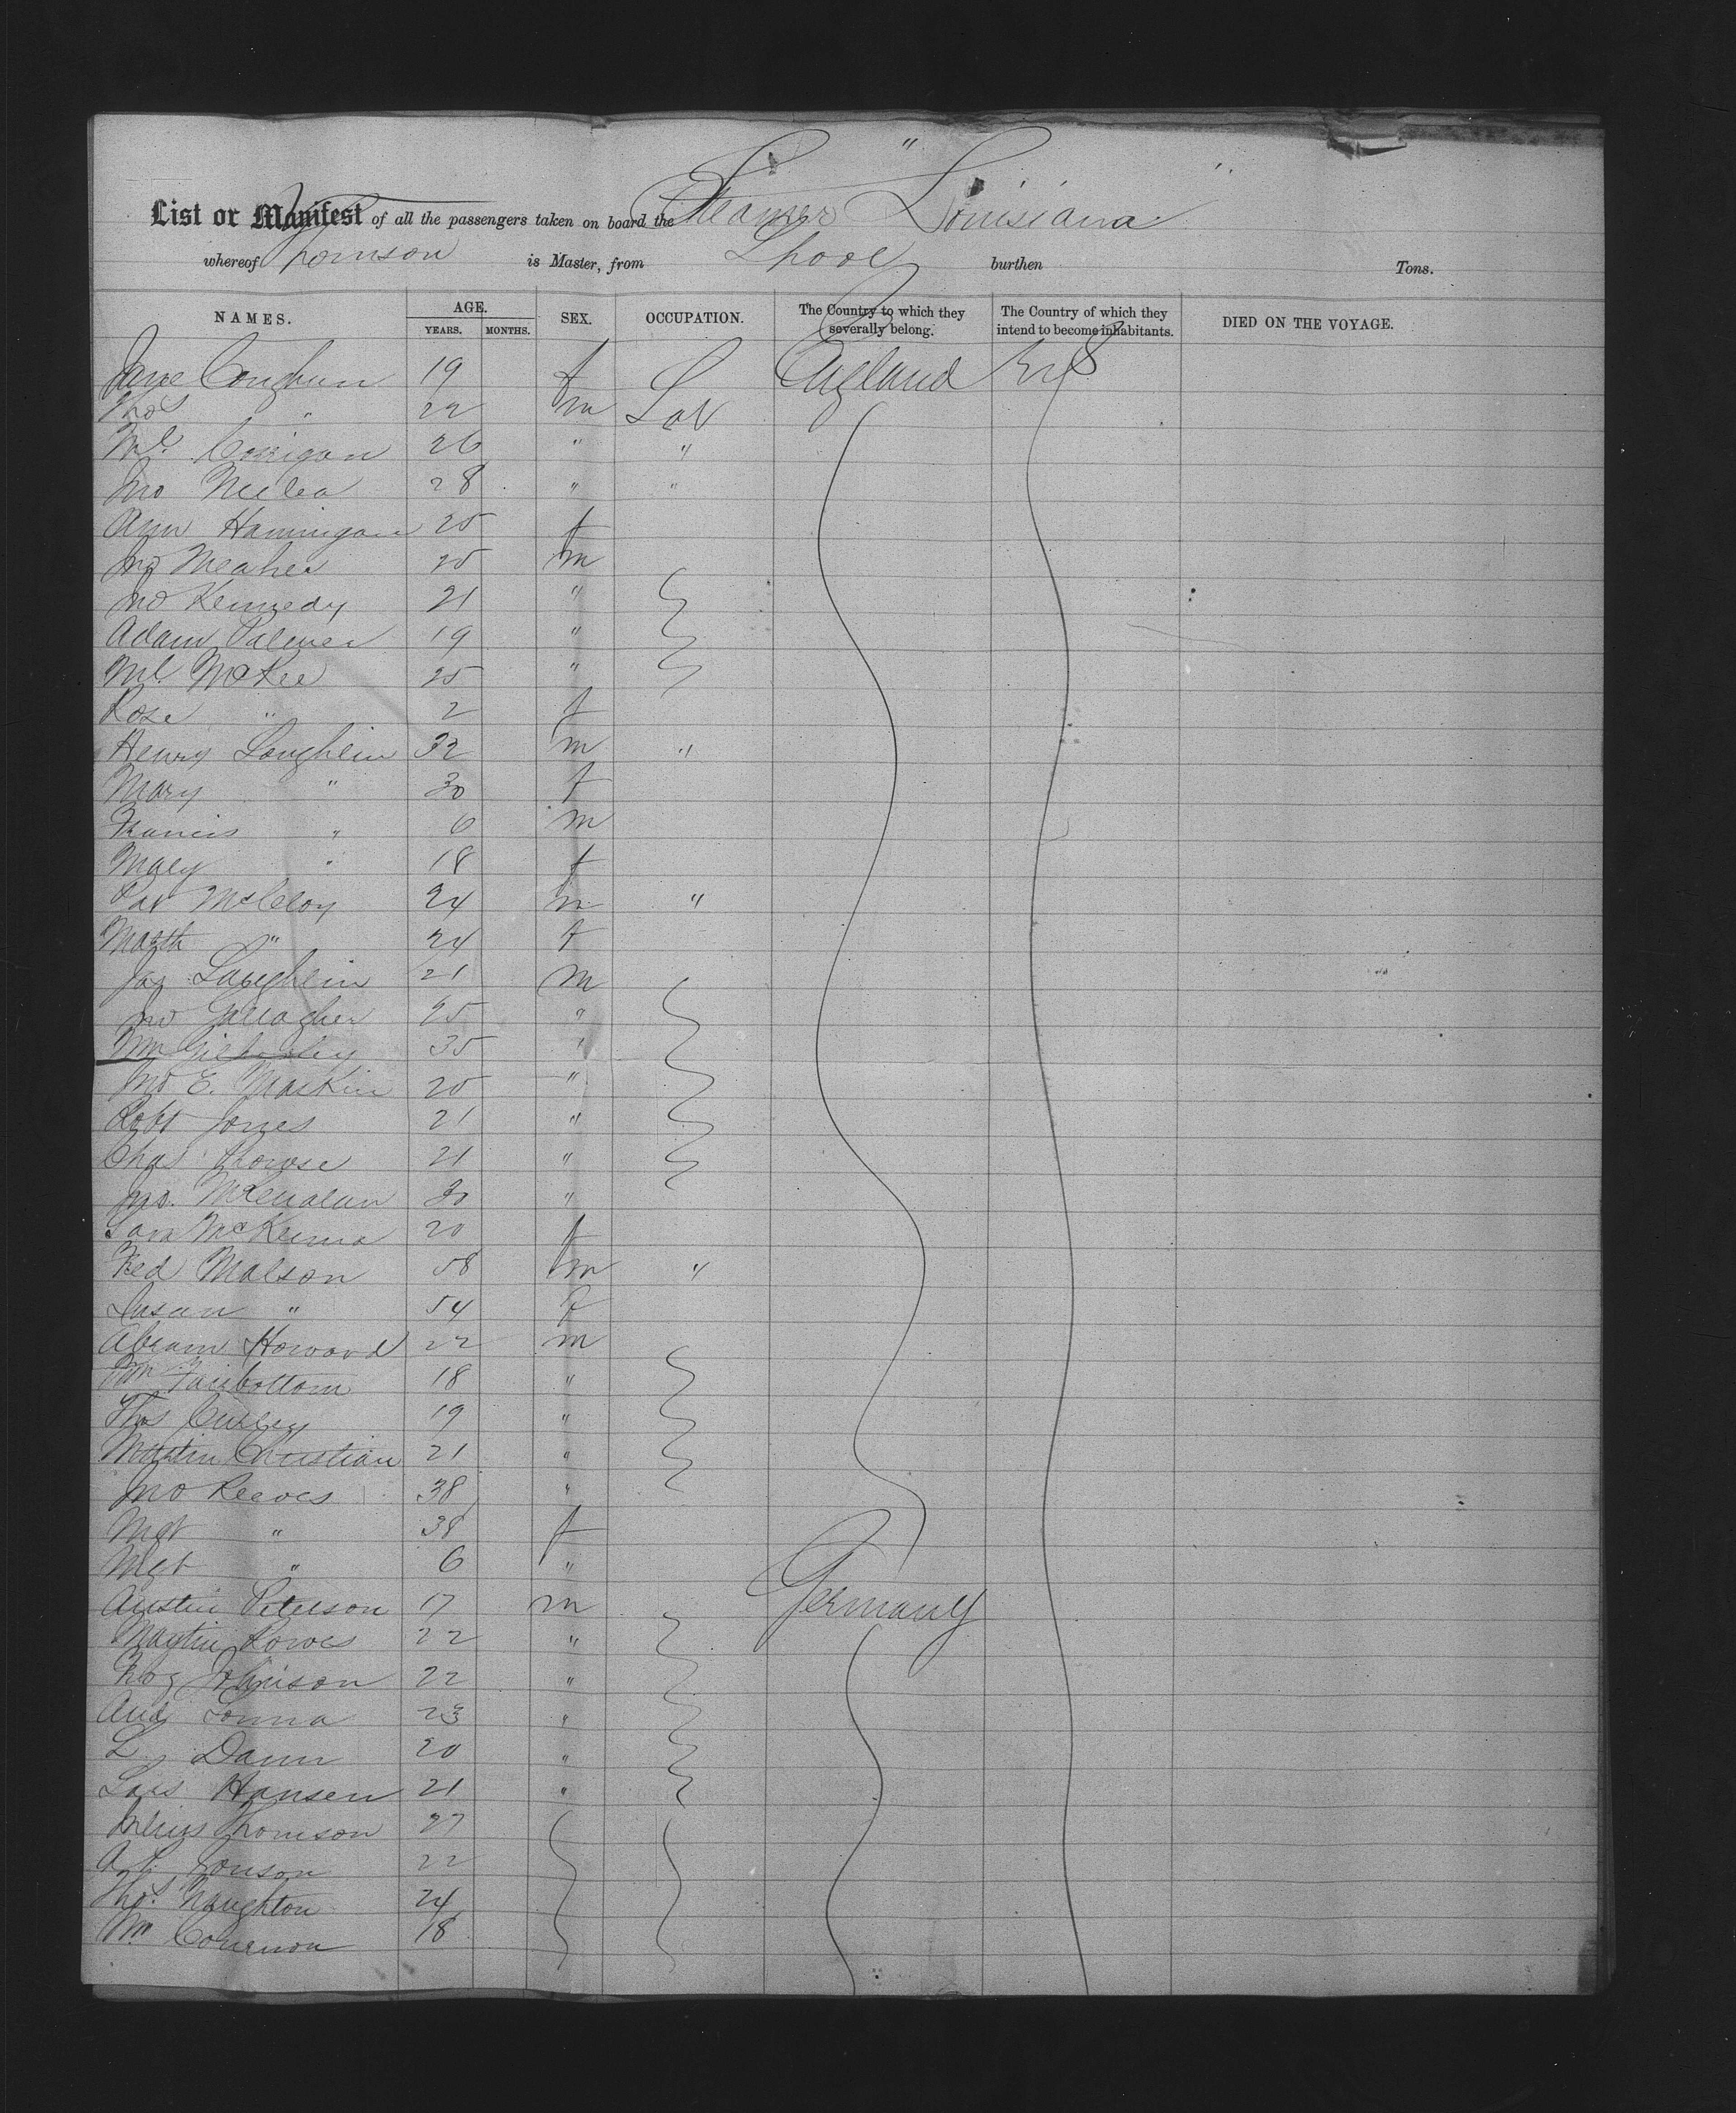 List or Manifest of all the passengers taken on board the Steamer "Louisiana"
whereof Thomson is Master, from Lpool burthen Tons.
NAMES. AGE. YEARS. MONTHS. SEX. OCCUPATION. The Country to which they severally belong. The Country of which they intend to become inhabitants. DIED ON THE VOYAGE.
Jane 19 f England U S
Thos " 22 m Lab
Ml. Corrigan 26 " "
Jno 28 " "
Ann Hannigan 25 f
Jno Meaher 25 m
Jno Kennedy 21 "
Adam Palmer 19 "
Ml. McKee 25 "
Rose " 2 f
Henry Loughlin 32 m "
Mary " 30 f
Francis " 6 m
Mary " 18 f
Pat McIlroy 24 m "
Marth " 24 f
Jas Laughlin 21 m
Jno Gallagher 25 "
Wm 35 "
Jno E. Maskin 20 "
Robt Jones 21 "
Chas 21 "
Jno. 30 "
Sara McKenna 20 f
Fred Malson 58 m "
Susan " 54 f
Abram Howard 22 m
Wm Fairbottom 18 "
Thos Curley 19 "
Martin Christian 21 "
Jno Reeves 38 "
Mgt " 38 f
Mgt " 6 "
Austin Peterson 17 m Germany
Martin 22 "
Johnson 22 "
And 23 "
L. Dann 20 "
Lars Hansen 21 "
Julius Thomson 27
A. Jonson 22
Thos. Naughton 24
18